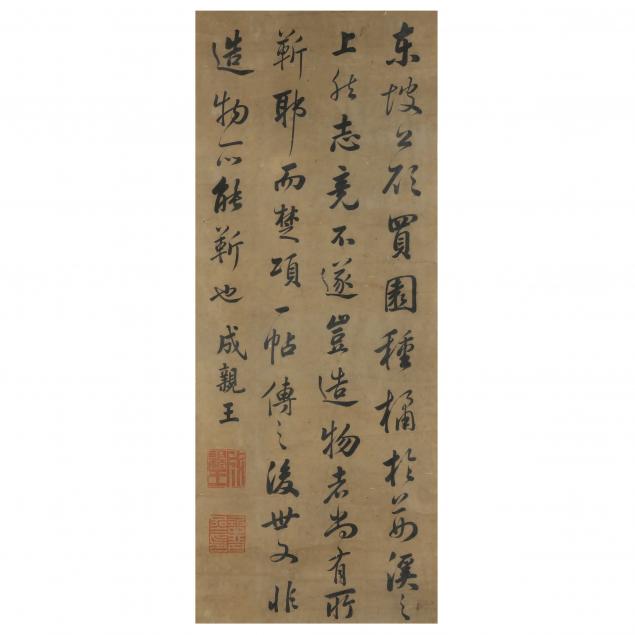 东坡公欲買園種橘於荊溪之
上然志竟不遂豈造物者尚有所
靳耶而楚頌一帖傳之後世又非
造物所能靳也
成親王